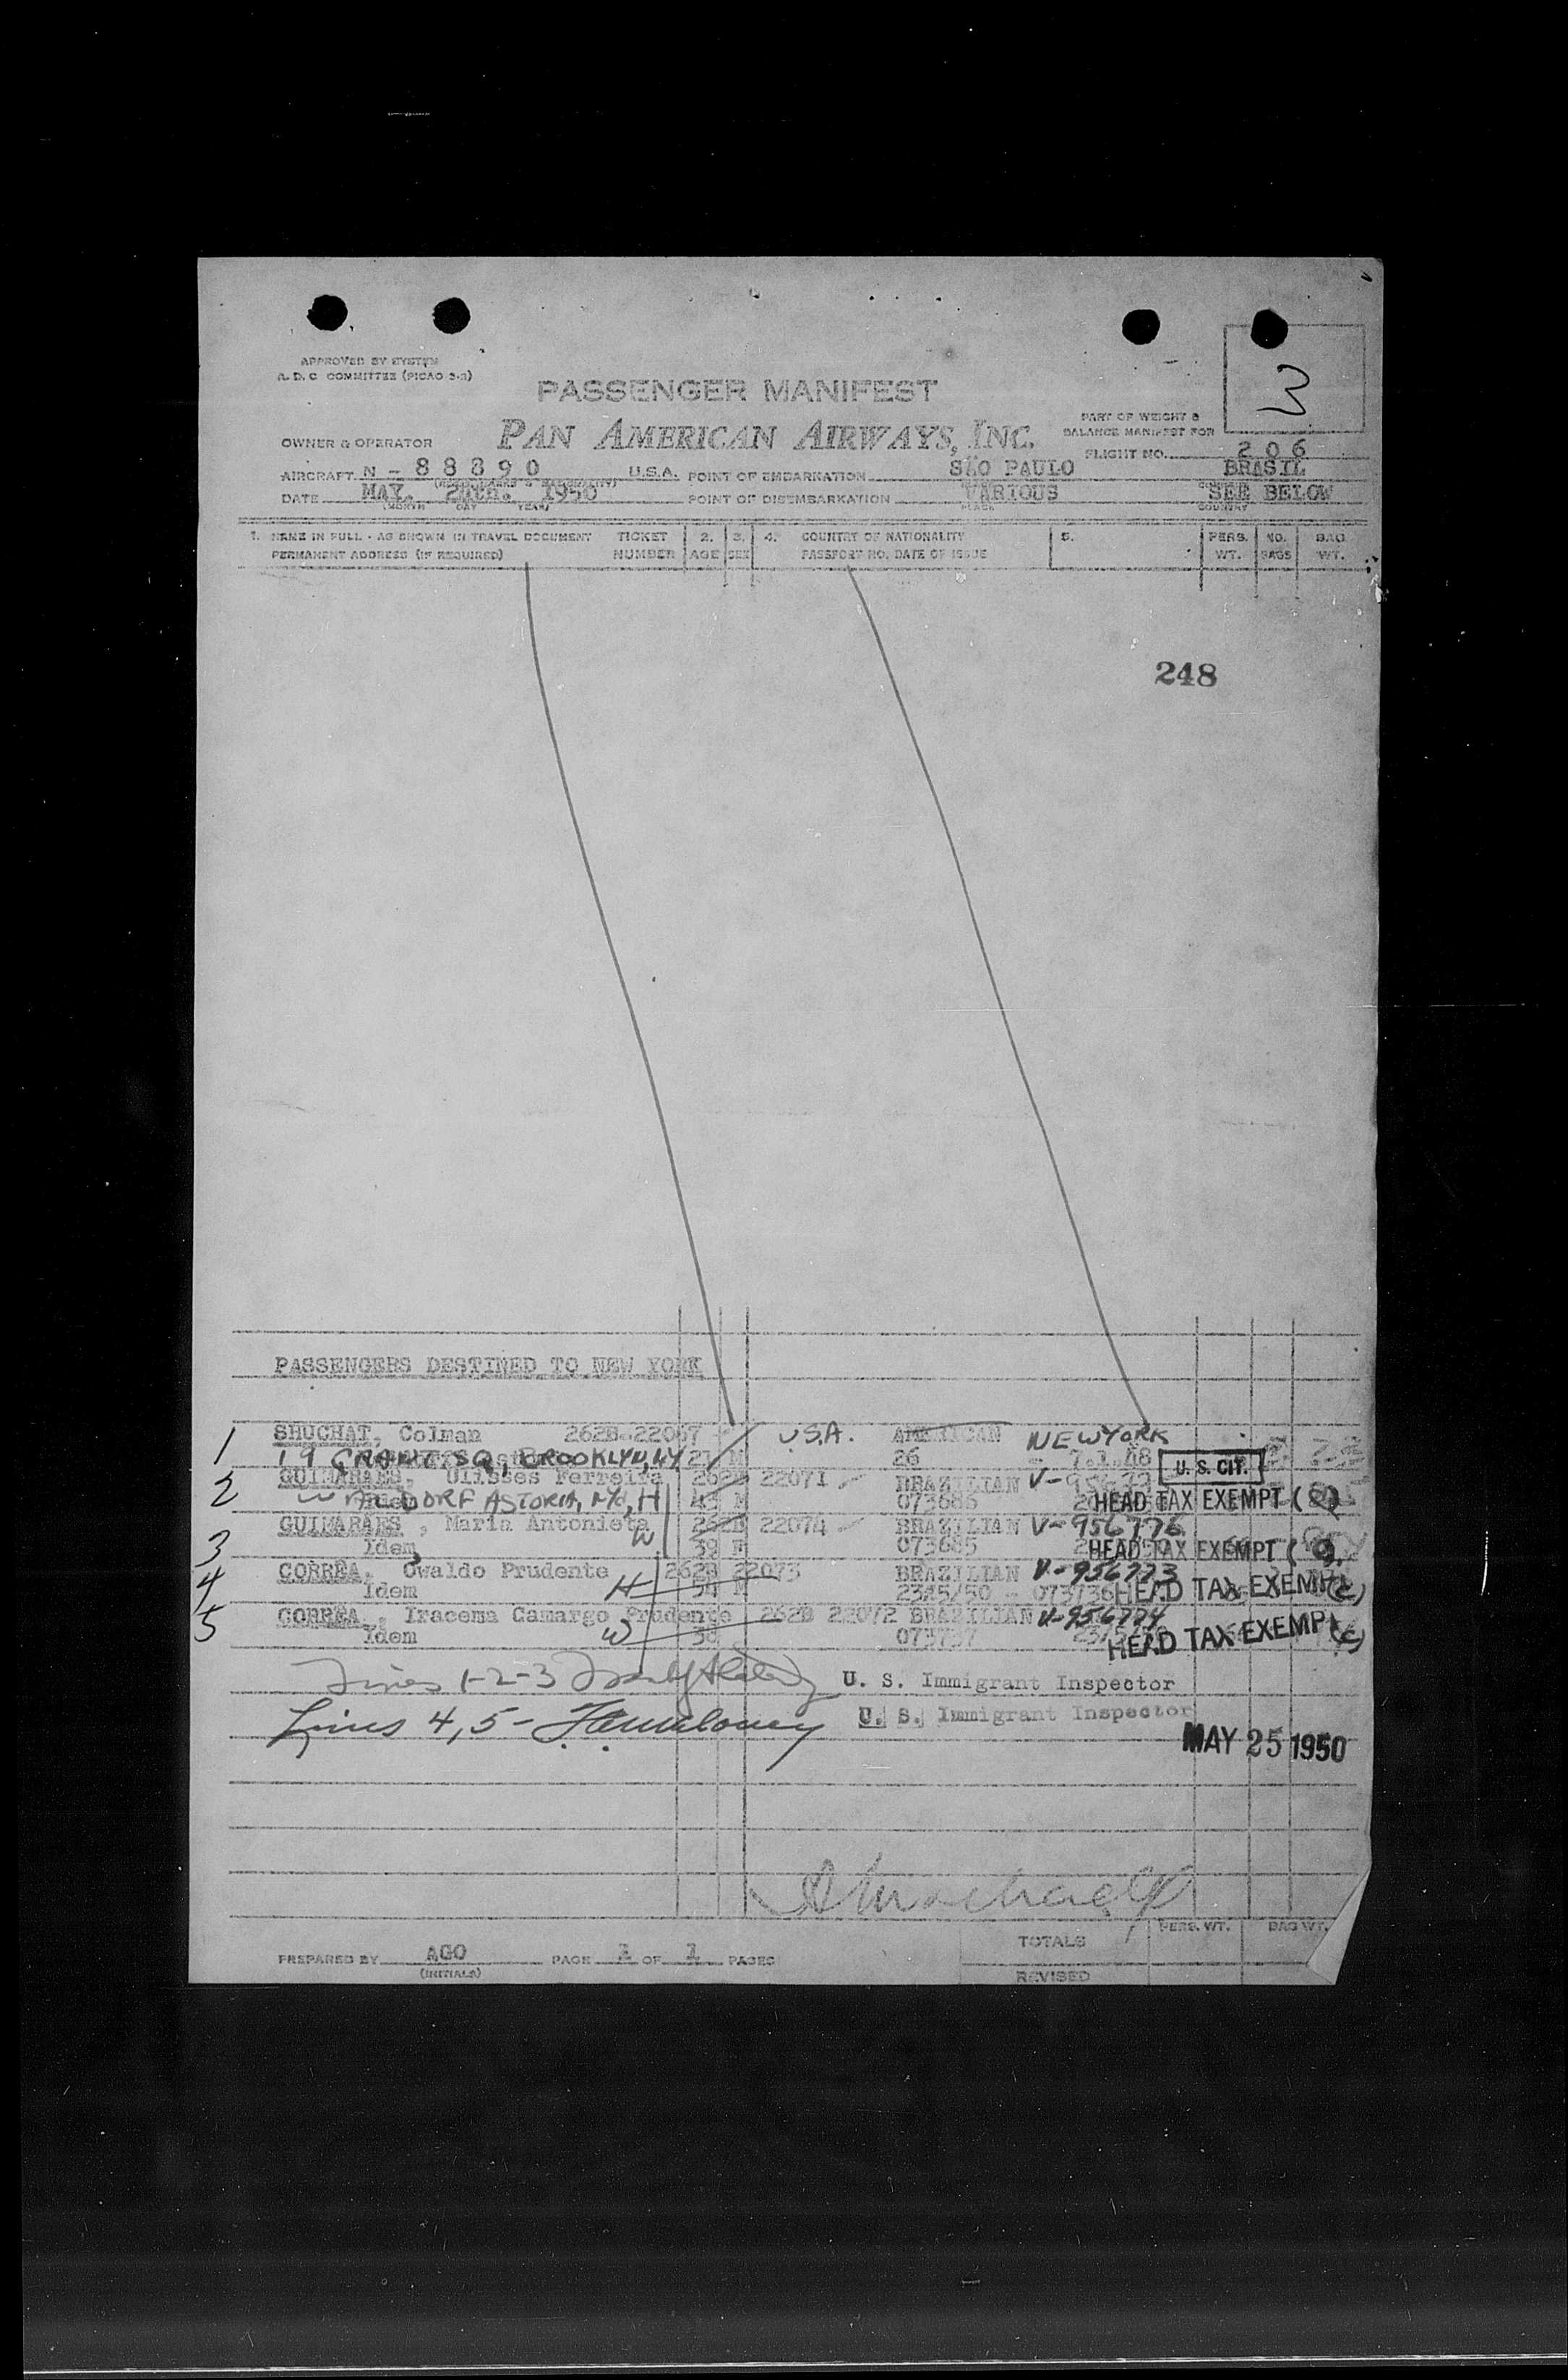 APPROVED BY SYSTEM
A. D. C COMMITTEE (PICAO 3-2)
3
PASSENGER MANIFEST
PART OF WEIGHT &
BALANCE MANIFEST FOR
OWNER & OPERATOR PAN AMERICAN AIRWAYS, INC.
FLIGHT NO. 206
AIRCRAFT N - 88890 U.S.A. POINT OF EMBARKATION SÃO PAULO BRASIL
DATE MAY. 24th. 1950 POINT OF DISEMBARKATION VARIOUS SEE BELOW
(MONTH DAY YEAR) PLACE COUNTRY
1. NAME IN FULL - AS SHOWN IN TRAVEL DOCUMENT TICKET 2. 3. 4. COUNTRY OF NATIONALITY 5. PERS. NO. BAG
PERMANENT ADDRESS (IF REQUIRED) NUMBER AGE SEX PASSPORT NO. DATE OF ISSUE WT. BAGS WT.
248
PASSENGERS DESTINED TO NEW YORK
1 SHUCHAT, Colman 262B 22067 U.S.A. AMERICAN NEW YORK
19 GRANT SQ, BROOKLYN, NY 27 M 26 - 7.1.48 U. S. CIT.
2 GUIMARAES, Ulisses Ferreira 262B 22071 BRAZILIAN V-
WALDORF ASTORIA, NY, H 43 M 073686 HEAD TAX EXEMPT
3 GUIMARAES, Maria Antonieta 262B 22074 BRAZILIAN V-956776
Idem W 39 F 073685 HEAD TAX EXEMPT
4 CORRÊA, Owaldo Prudente 262B 22073 BRAZILIAN V-956773
Idem H 54 M 2325/50 - 073736 HEAD TAX EXEMPT (C)
5 CORRÊA, Iracema Camargo Prudente 262B 22072 BRAZILIAN V-956774
Idem W 38 073737 HEAD TAX EXEMPT (C)
Lines 1-2-3 U. S. Immigrant Inspector
Lines 4,5- U. S. Immigrant Inspector
MAY 25 1950
TOTALS PERS. WT. BAG WT.
PREPARED BY AGO PAGE 1 OF 1 PAGES
(INITIALS) REVISED